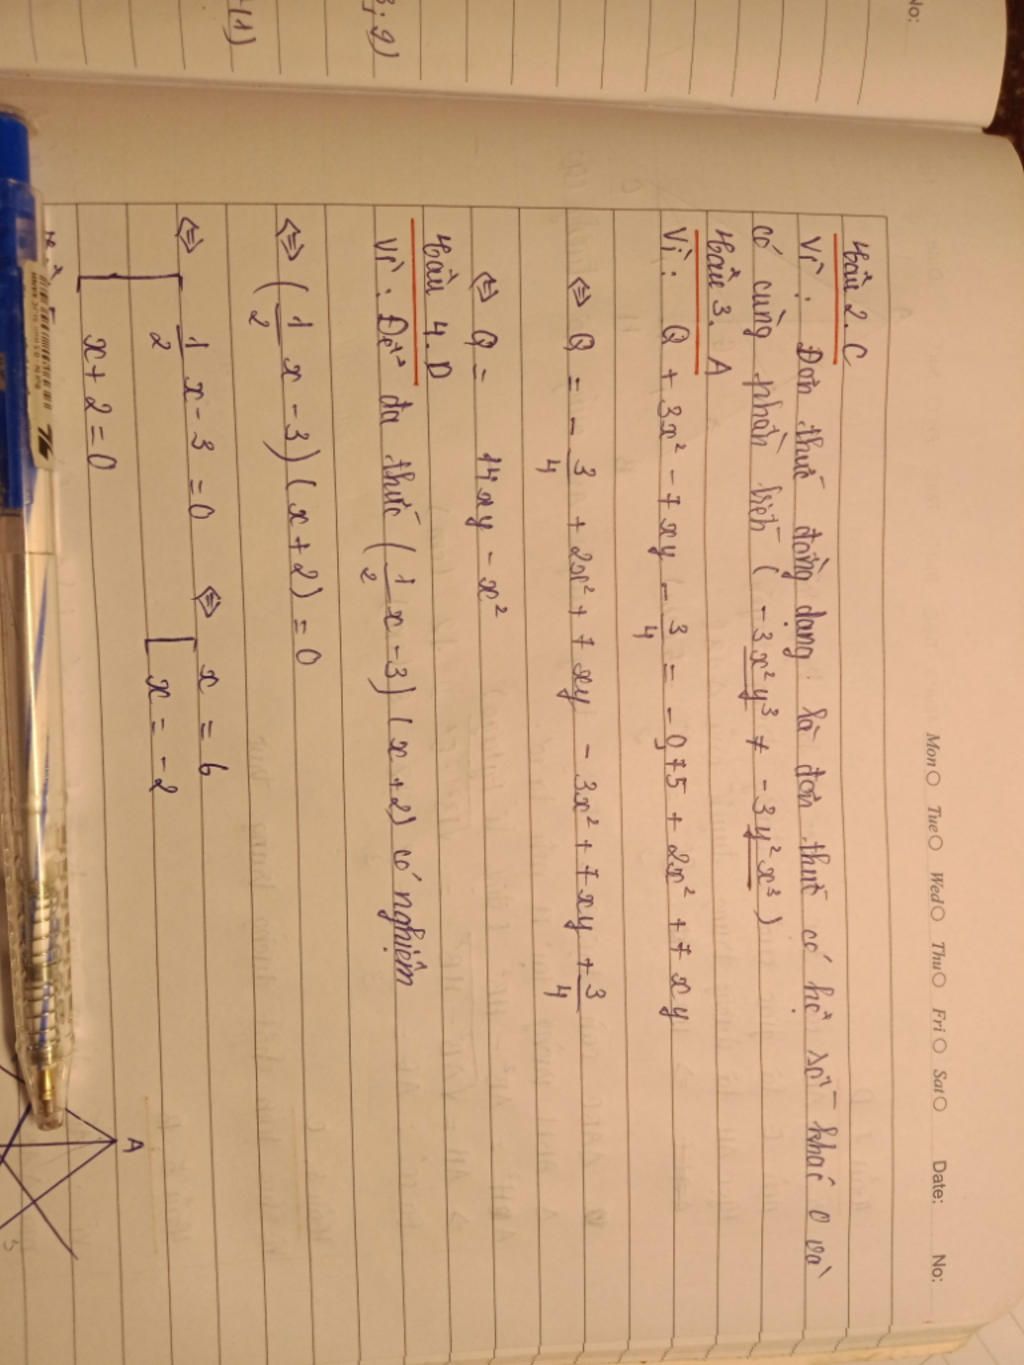 No:
3; 9)
+(1)
Mon Tue Wed Thu Fri Sat Date: No:
Câu 2. C
Vì: Đơn thức đồng dạng là đơn thức có hệ số khác 0 và
có cùng phần biến ( - 3x²y³ ≠ - 3y²x³ )
Câu 3. A
Vì: Q + 3x² - 7xy - 3/4 = - 0,75 + 2x² + 7xy
⇔ Q = - 3/4 + 2x² + 7xy - 3x² + 7xy + 3/4
⇔ Q = 14xy - x²
Câu 4. D
Vì: Để đa thức ( 1/2 x - 3 ) ( x + 2 ) có nghiệm
⇔ ( 1/2 x - 3 ) ( x + 2 ) = 0
⇔ [ 1/2 x - 3 = 0 ⇔ [ x = 6
x + 2 = 0 x = - 2
A